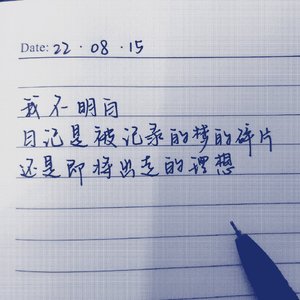 Date: 22 · 08 · 15
我不明白
日记是被记录的梦的碎片
还是即将出走的理想